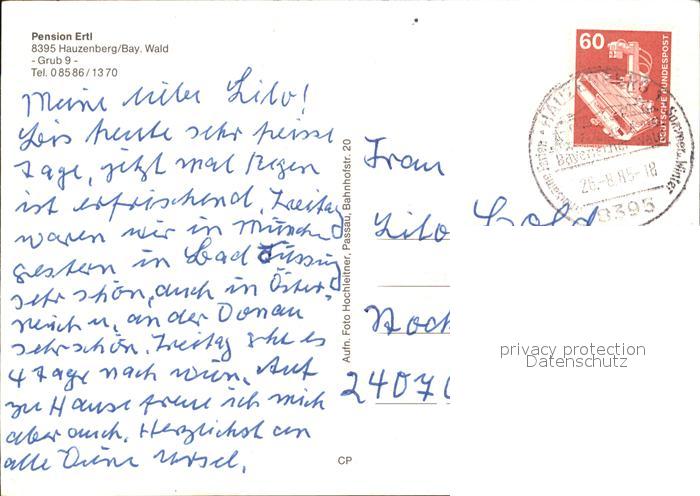 Pension Ertl
8395 Hauzenberg/Bay. Wald
- Grub 9 -
Tel. 0 85 86 / 13 70
Meine liebe Lilo!
Bis heute sehr heisse
Tage, jetzt mal Regen
ist erfrischend, Freitag
waren wir in München
gestern in Bad Füssing
sehr schön, auch in Öster-
reich u. an der Donau
sehr schön. Freitag geht es
4 Tage nach Wien. Auf
zu Hause freue ich mich
aber auch. Herzlichst an
alle Deine Ursel.
Aufn. Foto Hochleitner, Passau, Bahnhofstr. 20
CP
Frau
Lilo
2407
60
DEUTSCHE BUNDESPOST
Sommer u. Winter
26.-8.85-18
8395
privacy protection
Datenschutz